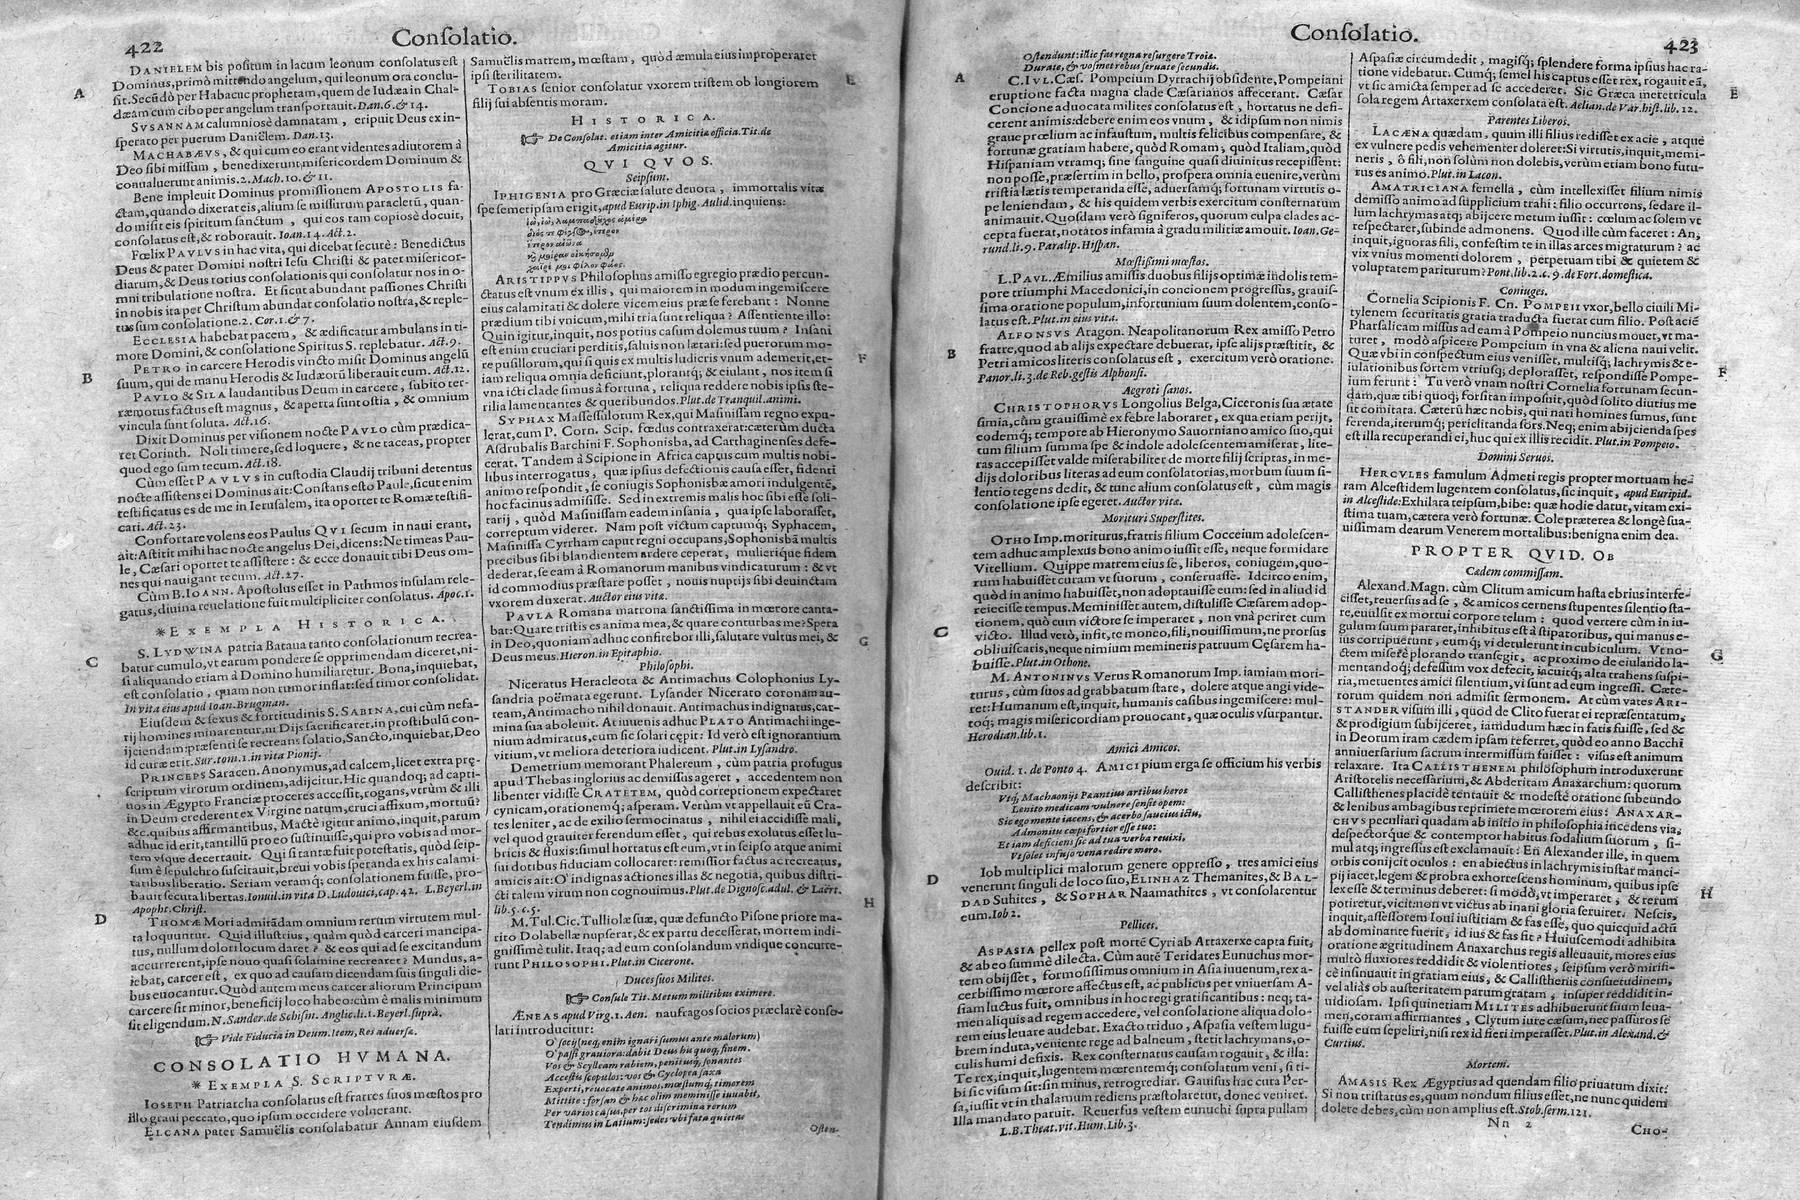 422
Consolatio.
DANIELEM bis positum in lacum leonum consolatus est
Dominus, primò mittendo angelum, qui leonum ora conclu-
sit. Secũdò per Habacuc prophetam, quem de Iudæa in Chal-
dæam cum cibo per angelum transportauit. Dan. 6. & 14.
SVSANNAM calumniosè damnatam, eripuit Deus ex in-
sperato per puerum Daniëlem. Dan. 13.
MACHABÆVS, & qui cum eo erant videntes adiutorem à
Deo sibi missum, benedixerunt misericordem Dominum &
conualuerunt animis. 2. Mach. 10. & 11.
Bene impleuit Dominus promissionem APOSTOLIS fa-
ctam, quando dixerat eis, alium se missurum paracletũ, quan-
do misit eis spiritum sanctum, qui eos tam copiosè docuit,
consolatus est, & roborauit. Ioan. 14. Act. 2.
Fœlix PAVLVS in hac vita, qui dicebat securè: Benedictus
Deus & pater Domini nostri Iesu Christi & pater misericor-
diarum, & Deus totius consolationis qui consolatur nos in o-
mni tribulatione nostra. Et sicut abundant passiones Christi
in nobis ita per Christum abundat consolatio nostra, & reple-
tus sum consolatione. 2. Cor. 1. & 7.
ECCLESIA habebat pacem, & ædificatur ambulans in ti-
more Domini, & consolatione Spiritus S. replebatur. Act. 9.
PETRO in carcere Herodis vincto misit Dominus angelũ
suum, qui de manu Herodis & Iudæorũ liberauit eum. Act. 12.
PAVLO & SILA laudantibus Deum in carcere, subito ter-
ræmotus factus est magnus, & aperta sunt ostia, & omnium
vincula sunt soluta. Act. 16.
Dixit Dominus per visionem nocte PAVLO cùm prædica-
ret Corinth. Noli timere, sed loquere, & ne taceas, propter
quod ego sum tecum. Act. 18.
Cùm esset PAVLVS in custodia Claudij tribuni detentus
nocte assistens ei Dominus ait: Constans esto Paule, sicut enim
testificatus es de me in Ierusalem, ita oportet te Romæ testifi-
cari. Act. 23.
Confortare volens eos Paulus QVI secum in naui erant,
ait: Astitit mihi hac nocte angelus Dei, dicens: Ne timeas Pau-
le, Cæsari oportet te assistere: & ecce donauit tibi Deus om-
nes qui nauigant tecum. Act. 27.
Cùm B. IOANN. Apostolus esset in Pathmos insulam rele-
gatus, diuina reuelatione fuit multipliciter consolatus. Apoc. 1.
* EXEMPLA HISTORICA.
S. LYDWINA patria Bataua tanto consolationum recrea-
batur cumulo, vt earum pondere se opprimendam diceret, ni-
si aliquando etiam à Domino humiliaretur. Bona, inquiebat,
est consolatio, quam non tumor inflat: sed timor consolidat.
In vita eius apud Ioan. Brugman.
Eiusdem & sexus & fortitudinis S. SABINA, cui cùm nefa-
rij homines minarentur, ni Dijs sacrificaret, in prostibulũ con-
ijciendam: præsenti se recreans solatio, Sancto, inquiebat, Deo
id curæ erit. Sur. tom. 1. in vita Pionij.
PRINCEPS Saracen. Anonymus, ad calcem, licet extra prę-
scriptum virorum ordinem, adijcitur. Hic quandoq; ad capti-
uos in Ægypto Franciæ proceres accessit, rogans, vtrùm & illi
in Deum crederent ex Virgine natum, cruci affixum, mortuũ?
&c. quibus affirmantibus, Mactè igitur animo, inquit, parum
adhuc id erit, tantillũ pro eo sustinuisse, qui pro vobis ad mor-
tem vsque decertauit. Qui si tantæ fuit potestatis, quòd seip-
sum è sepulchro suscitauit, breui vobis speranda ex his calami-
tatibus liberatio. Seriam veramq; consolationem fuisse, pro-
bauit secuta libertas. Ionuil. in vita D. Ludouici, cap. 42. L. Beyerl. in
Apopht. Christ.
THOMÆ Mori admirãdam omnium rerum virtutem mul-
ta loquuntur. Quid illustrius, quàm quòd carceri mancipa-
tus, nullum dolori locum daret? & eos qui ad se excitandum
accurrerent, ipse nouo quasi solamine recrearet? Mundus, a-
iebat, carcer est, ex quo ad causam dicendam suis singuli die-
bus euocantur. Quòd autem meus carcer aliorum Principum
carcere sit minor, beneficij loco habeo: cùm è malis minimum
sit eligendum. N. Sander. de Schism. Anglic. li. 1. Beyerl. suprà.
☞ Vide Fiducia in Deum. Item, Res aduersæ.
CONSOLATIO HVMANA.
* EXEMPLA S. SCRIPTVRÆ.
IOSEPH Patriarcha consolatus est fratres suos mœstos pro
illo graui peccato, quo ipsum occidere volnerant.
ELCANA pater Samuëlis consolabatur Annam eiusdem
A
B
C
D
Samuëlis matrem, mœstam, quòd æmula eius improperaret
ipsi sterilitatem.
TOBIAS senior consolatur vxorem tristem ob longiorem
filij sui absentis moram.
HISTORICA.
☞ De Consolat. etiam inter Amicitiæ officia. Tit. de
Amicitia agitur.
QVI QVOS.
Seipsum.
IPHIGENIA pro Græciæ salute deuota, immortalis vitæ
spe semetipsam erigit, apud Eurip. in Iphig. Aulid. inquiens:
ARISTIPPVS Philosophus amisso egregio prædio percun-
ctatus est vnum ex illis, qui maiorem in modum ingemiscere
eius calamitati & dolere vicem eius præ se ferebant: Nonne
prædium tibi vnicum, mihi tria sunt reliqua? Assentiente illo:
Quin igitur, inquit, nos potius casum dolemus tuum? Insani
est enim cruciari perditis, saluis non lætari: sed puerorum mo-
re pusillorum, qui si quis ex multis ludicris vnum ademerit, et-
iam reliqua omnia deficiunt, plorantq; & eiulant, nos item si
vna icti clade simus à fortuna, reliqua reddere nobis ipsus ste-
rilia lamentantes & queribundos. Plut. de Tranquil. animi.
SYPHAX Massessulorum Rex, qui Masinissam regno expu-
lerat, cum P. Corn. Scip. fœdus contraxerat: cæterùm ducta
Asdrubalis Barchini F. Sophonisba, ad Carthaginenses defe-
cerat. Tandem à Scipione in Africa captus cum multis nobi-
libus interrogatus, quæ ipsius defectionis causa esset, fidenti
animo respondit, se coniugis Sophonisbæ amori indulgentẽ,
hoc facinus admisisse. Sed in extremis malis hoc sibi esse soli-
tarij, quòd Masinissam eadem insania, qua ipse laborasset,
correptum videret. Nam post victum captumq; Syphacem,
Masinissa Cyrrham caput regni occupans, Sophonisbã multis
precibus sibi blandientem ardere ceperat, mulierique fidem
dederat, se eam à Romanorum manibus vindicaturum: & vt
id commodius præstare posset, nouis nuptijs sibi deuinctam
vxorem duxerat. Auctor eius vitæ.
PAVLA Romana matrona sanctissima in mœrore canta-
bat: Quare tristis es anima mea, & quare conturbas me? Spera
in Deo, quoniam adhuc confitebor illi, salutare vultus mei, &
Deus meus. Hieron. in Epitaphio.
Philosophi.
Niceratus Heracleota & Antimachus Colophonius Ly-
sandria poëmata egerunt. Lysander Nicerato coronam au-
team, Antimacho nihil donauit. Antimachus indignatus, car-
mina sua aboleuit. At iuuenis adhuc PLATO Antimachi inge-
nium admiratus, eum sic solari cępit: Id verò est ignorantium
vitium, vt meliora deteriora iudicent. Plut. in Lysandro.
Demetrium memorant Phalereum, cùm patria profugus
apud Thebas inglorius ac demissus ageret, accedentem non
libenter vidisse CRATETEM, quòd correptionem expectaret
cynicam, orationemq; asperam. Verùm vt appellauit eũ Cra-
tes leniter, ac de exilio sermocinatus, nihil ei accidisse mali,
vel quod grauiter ferendum esset, qui rebus exolutus esset lu-
bricis & fluxis: simul hortatus est eum, vt in seipso atque animi
sui dotibus fiduciam collocaret: remissior factus ac recreatus,
amicis ait: O' indignas actiones illas & negotia, quibus distri-
cti talem virum non cognouimus. Plut. de Dignosc. adul. & Laërt.
lib. 5. c. 5.
M. Tul. Cic. Tulliolæ suæ, quæ defuncto Pisone priore ma-
rito Dolabellæ nupserat, & ex partu decesserat, mortem indi-
gnissimè tulit. Itaq; ad eum consolandum vndique concurre-
runt PHILOSOPHI. Plut. in Cicerone.
Duces suos Milites.
☞ Consule Tit. Metum militibus eximere.
ÆNEAS apud Virg. 1. Aen. naufragos socios præclarè conso-
lari introducitur:
O' socij (neq; enim ignari sumus ante malorum)
O' passi grauiora: dabit Deus his quoq; finem.
Vos & Scylleam rabiem, penitusq; sonantes
Accestis scopulos: vos & Cyclopea saxa
Experti, reuocate animos, mœstumq; timorem
Mittite: forsan & hæc olim meminisse iuuabit,
Per varios casus, per tot discrimina rerum
Tendimus in Latium: sedes vbi fata quietas
Osten-
E
F
G
H
Consolatio.
423
Ostendunt: illic fas regna resurgere Troiæ.
Durate, & vosmet rebus seruate secundis.
C. IVL. Cæs. Pompeium Dyrrachij obsidente, Pompeiani
eruptione facta magna clade Cæsarianos affecerant. Cæsar
Concione aduocata milites consolatus est, hortatus ne defi-
cerent animis: debere enim eos vnum, & id ipsum non nimis
graue prœlium ac infaustum, multis felicibus compensare, &
fortunæ gratiam habere, quòd Romam, quòd Italiam, quòd
Hispaniam vtramq; sine sanguine quasi diuinitus recepissent:
non posse, præsertim in bello, prospera omnia euenire, verùm
tristia lætis temperanda esse, aduersamq; fortunam virtutis o-
pe leniendam, & his quidem verbis exercitum consternatum
animauit. Quosdam verò signiferos, quorum culpa clades ac-
cepta fuerat, notatos infamia à gradu militiæ amouit. Ioan. Ge-
rund. li. 9. Paralip. Hispan.
Mœstissimi mœstos.
L. PAVL. Æmilius amissis duobus filijs optimæ indolis tem-
pore triumphi Macedonici, in concionem progressus, grauis-
sima oratione populum, infortunium suum dolentem, conso-
latus est. Plut. in eius vita.
ALFONSVS Aragon. Neapolitanorum Rex amisso Petro
fratre, quod ab alijs expectare debuerat, ipse alijs præstitit, &
Petri amicos literis consolatus est, exercitum verò oratione.
Panor. li. 3. de Reb. gestis Alphonsi.
Aegroti sanos.
CHRISTOPHORVS Longolius Belga, Ciceronis sua ætate
simia, cùm grauissimè ex febre laboraret, ex qua etiam perijt,
eodemq; tempore ab Hieronymo Sauorniano amico suo, qui
tum filium summa spe & indole adolescentem amiserat, lite-
ras accepisset valde miserabiliter de morte filij scriptas, in me-
dijs doloribus literas ad eum consolatorias, morbum suum si-
lentio tegens dedit, & tunc alium consolatus est, cùm magis
consolatione ipse egeret. Auctor vitæ.
Morituri Superstites.
OTHO Imp. moriturus, fratris filium Cocceium adolescen-
tem adhuc amplexus bono animo iussit esse, neque formidare
Vitellium. Quippe matrem eius se, liberos, coniugem, quo-
rum habuisset curam vt suorum, conseruasse. Idcirco enim,
quòd in animo habuisset, non adoptauisse eum: sed in aliud id
reiecisse tempus. Meminisset autem, distulisse Cæsarem adop-
tionem, quò eum victore se imperaret, non vnà periret cum
victo. Illud verò, infit, te moneo, fili, nouissimum, ne prorsus
obliuiscaris, neque nimium memineris patruum Cęsarem ha-
buisse. Plut. in Othone.
M. ANTONINVS Verus Romanorum Imp. iamiam mori-
turus, cùm suos ad grabbatum stare, dolere atque angi vide-
ret: Humanum est, inquit, humanis casibus ingemiscere: mul-
toq; magis misericordiam prouocant, quæ oculis vsurpantur.
Herodian. lib. 1.
Amici Amicos.
Ouid. 1. de Ponto 4. AMICI pium erga se officium his verbis
describit:
Vtq; Machaonijs Pæantius artibus heros
Lenito medicam vulnere sensit opem:
Sic ego mente iacens, & acerbo saucius ictu,
Admonitu cœpi fortior esse tuo:
Et iam deficiens sic ad tua verba reuixi,
Vt solet infuso vena redire mero.
Iob multiplici malorum genere oppresso, tres amici eius
venerunt singuli de loco suo, ELINHAZ Themanites, & BAL-
DAD Suhites, & SOPHAR Naamathites, vt consolarentur
eum. Iob 2.
Pellices.
ASPASIA pellex post mortẽ Cyri ab Artaxerxe capta fuit,
& ab eo summè dilecta. Cùm autẽ Teridates Eunuchus mor-
tem obijsset, formosissimus omnium in Asia iuuenum, rex a-
cerbissimo mœrore affectus est, ac publicus per vniuersam A-
siam luctus fuit, omnibus in hoc regi gratificantibus: neq; ta-
men aliquis ad regem accedere, vel consolatione aliqua dolo-
rem eius leuare audebat. Exacto triduo, Aspasia vestem lugu-
brem induta, veniente rege ad balneum, stetit lachrymans, o-
culis humi defixis. Rex consternatus causam rogauit, & illa:
Te rex, inquit, lugentem mœrentemq; consolatum veni, si ti-
bi sic visum sit: sin minus, retrogrediar. Gauisus hac cura Per-
sa, iussit vt in thalamum rediens præstolaretur, donec veniret.
Illa mandato paruit. Reuersus vestem eunuchi supra pullam
L. B. Theat. vit. Hum. Lib. 3.
A
B
C
D
Aspasiæ circumdedit, magisq; splendere forma ipsius hac ra-
tione videbatur. Cumq; semel his captus esset rex, rogauit eã,
vt sic amicta semper ad se accederet. Sic Græca meretricula
sola regem Artaxerxem consolata est. Aelian. de Var. hist. lib. 12.
Parentes Liberos.
LACÆNA quædam, quum illi filius redisset ex acie, atque
ex vulnere pedis vehementer doleret: Si virtutis, inquit, memi-
neris, ô fili, non solùm non dolebis, verùm etiam bono futu-
rus es animo. Plut. in Lacon.
AMATRICIANA femella, cùm intellexisset filium nimis
demisso animo ad supplicium trahi: filio occurrens, sedare il-
lum lachrymas atq; abijcere metum iussit: cœlum ac solem vt
respectaret, subinde admonens. Quod ille cùm faceret: An,
inquit, ignoras fili, confestim te in illas arces migraturum? ac
vix vnius momenti dolorem, perpetuam tibi & quietem &
voluptatem pariturum? Pont. lib. 2. c. 9. de Fort. domestica.
Coniuges.
Cornelia Scipionis F. Cn. POMPEII vxor, bello ciuili Mi-
tylenem securitatis gratia traducta fuerat cum filio. Post aciẽ
Pharsalicam missus ad eam à Pompeio nuncius mouet, vt ma-
turet, modò aspicere Pompeium in vna & aliena naui velit.
Quæ vbi in conspectum eius venisset, multisq; lachrymis & e-
iulationibus sortem vtriusq; deplorasset, respondisse Pompe-
ium ferunt: Tu verò vnam nostri Cornelia fortunam secun-
dam, quæ tibi quoq; forsitan imposuit, quòd solito diutius me
sit comitata. Cæterũ hæc nobis, qui nati homines sumus, sunt
ferenda, iterumq; periclitanda sors. Neq; enim abijcienda spes
est illa recuperandi ei, huc qui ex illis recidit. Plut. in Pompeio.
Domini Seruos.
HERCVLES famulum Admeti regis propter mortuam he-
ram Alcestidem lugentem consolatus, sic inquit, apud Euripid.
in Alcestide: Exhilara teipsum, bibe: quæ hodie datur, vitam exi-
stima tuam, cætera verò fortunæ. Cole præterea & longè sua-
uissimam dearum Venerem mortalibus: benigna enim dea.
PROPTER QVID. OB
Cædem commissam.
Alexand. Magn. cùm Clitum amicum hasta ebrius interfe-
cisset, reuersus ad se, & amicos cernens stupentes silentio sta-
re, euulsit ex mortui corpore telum: quod vertere cùm in iu-
gulum suum pararet, inhibitus est à stipatoribus, qui manus e-
ius corripuerunt, eumq; vi detulerunt in cubiculum. Vt no-
ctem miserè plorando transegit, ac proximo de eiulando la-
mentandoq; defessum vox defecit, iacuitq; alta trahens suspi-
ria, metuentes amici silentium, vi sunt ad eum ingressi. Cæte-
rorum quidem non admisit sermonem. At cùm vates ARI-
STANDER visum illi, quod de Clito fuerat ei repræsentatum,
& prodigium subijceret, iamdudum hæc in fatis fuisse, sed &
in Deorum iram cædem ipsam referret, quòd eo anno Bacchi
anniuersarium sacrum intermissum fuisset: visus est animum
relaxare. Ita CALLISTHENEM philosophum introduxerunt
Aristotelis necessarium, & Abderitam Anaxarchum: quorum
Callisthenes placidè tentauit & modestè oratione subeundo
& lenibus ambagibus reprimere mœrorem eius: ANAXAR-
CHVS peculiari quadam ab initio in philosophia incedens via,
despectorque & contemptor habitus sodalium suorum, si-
mul atq; ingressus est exclamauit: En Alexander ille, in quem
orbis conijcit oculos: en abiectus in lachrymis instar manci-
pij iacet, legem & probra exhorrescens hominum, quibus ipse
lex esse & terminus deberet: si modò, vt imperaret, & rerum
potiretur, vicit: non vt victus ab inani gloria seruiret. Nescis,
inquit, assessorem Ioui iustitiam & fas esse, quo quicquid actũ
ab dominante fuerit, id ius & fas sit? Huiuscemodi adhibita
oratione ægritudinem Anaxarchus regis alleuauit, mores eius
multò fluxiores reddidit & violentiores, seipsum verò mirifi-
cè insinuauit in gratiam eius, & Callisthenis consuetudinem,
vel aliàs ob austeritatem parum gratam, insuper reddidit in-
uidiosam. Ipsi quinetiam MILITES adhibuerunt suum leua-
men, coram affirmantes, Clytum iure cæsum, nec passuros se
fuisse eum sepeliri, nisi rex id fieri imperasset. Plut. in Alexand. &
Curtius.
Mortem.
AMASIS Rex Ægyptius ad quendam filio priuatum dixit:
Si non tristatus es, quum nondum filius esset, ne nunc quidem
dolere debes, cùm non amplius est. Stob. serm. 121.
Nn 2
CHO-
E
F
G
H